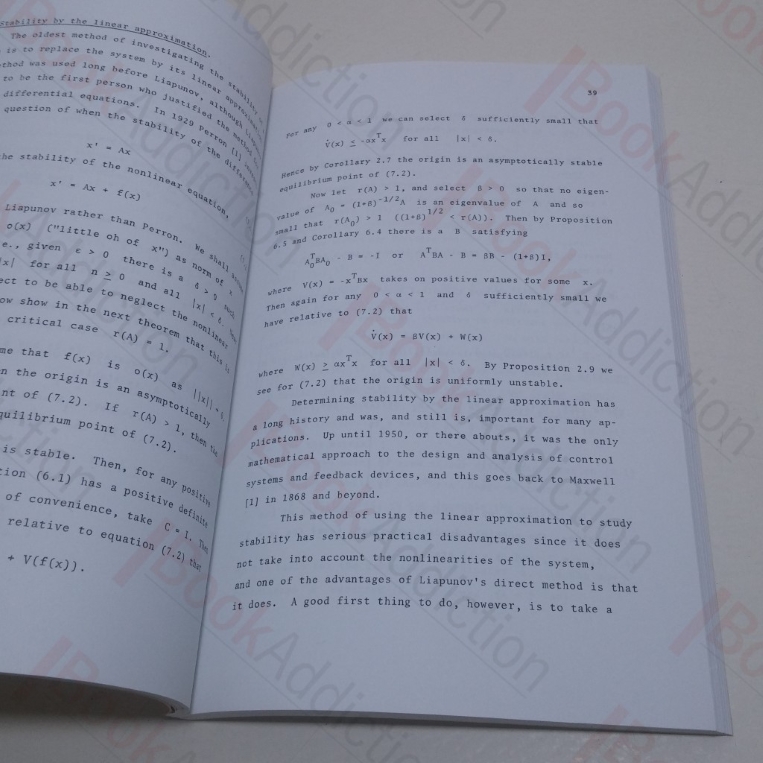 Stability by the linear approximation.
The oldest method of investigating the stability
is to replace the system by its linear
thod was used long before Liapunov, although
to be the first person who justified the method
differential equations. In 1929 Perron [1]
question of when the stability of the
x' = Ax
he stability of the nonlinear equation,
x' = Ax + f(x)
Liapunov rather than Perron. We shall
o(x) ("little oh of x") as norm of x
e., given ε > 0 there is a δ > 0
|x| for all n ≥ 0 and all |x| < δ.
ect to be able to neglect the nonlinear
ow show in the next theorem that this is
critical case r(A) = 1.
me that f(x) is o(x) as ||x||
n the origin is an asymptotically
nt of (7.2). If r(A) > 1, then the
quilibrium point of (7.2).
is stable. Then, for any positive
tion (6.1) has a positive definite
of convenience, take C = I. Then
relative to equation (7.2) that
+ V(f(x)).
59
For any 0 < α < 1 we can select δ sufficiently small that
V̇(x) ≤ -αxᵀx for all |x| < δ.
Hence by Corollary 2.7 the origin is an asymptotically stable
equilibrium point of (7.2).
Now let r(A) > 1, and select β > 0 so that no eigen-
value of A₀ = (1+β)^-1/2 A is an eigenvalue of A and so
small that r(A₀) > 1 ((1+β)^1/2 < r(A)). Then by Proposition
6.5 and Corollary 6.4 there is a B satisfying
A₀ᵀBA₀ - B = -I or AᵀBA - B = βB - (1+β)I,
where V(x) = -xᵀBx takes on positive values for some x.
Then again for any 0 < α < 1 and δ sufficiently small we
have relative to (7.2) that
V̇(x) = βV(x) + W(x)
where W(x) ≥ αxᵀx for all |x| < δ. By Proposition 2.9 we
see for (7.2) that the origin is uniformly unstable.
Determining stability by the linear approximation has
a long history and was, and still is, important for many ap-
plications. Up until 1950, or there abouts, it was the only
mathematical approach to the design and analysis of control
systems and feedback devices, and this goes back to Maxwell
[1] in 1868 and beyond.
This method of using the linear approximation to study
stability has serious practical disadvantages since it does
not take into account the nonlinearities of the system,
and one of the advantages of Liapunov's direct method is that
it does. A good first thing to do, however, is to take a
BookAddiction